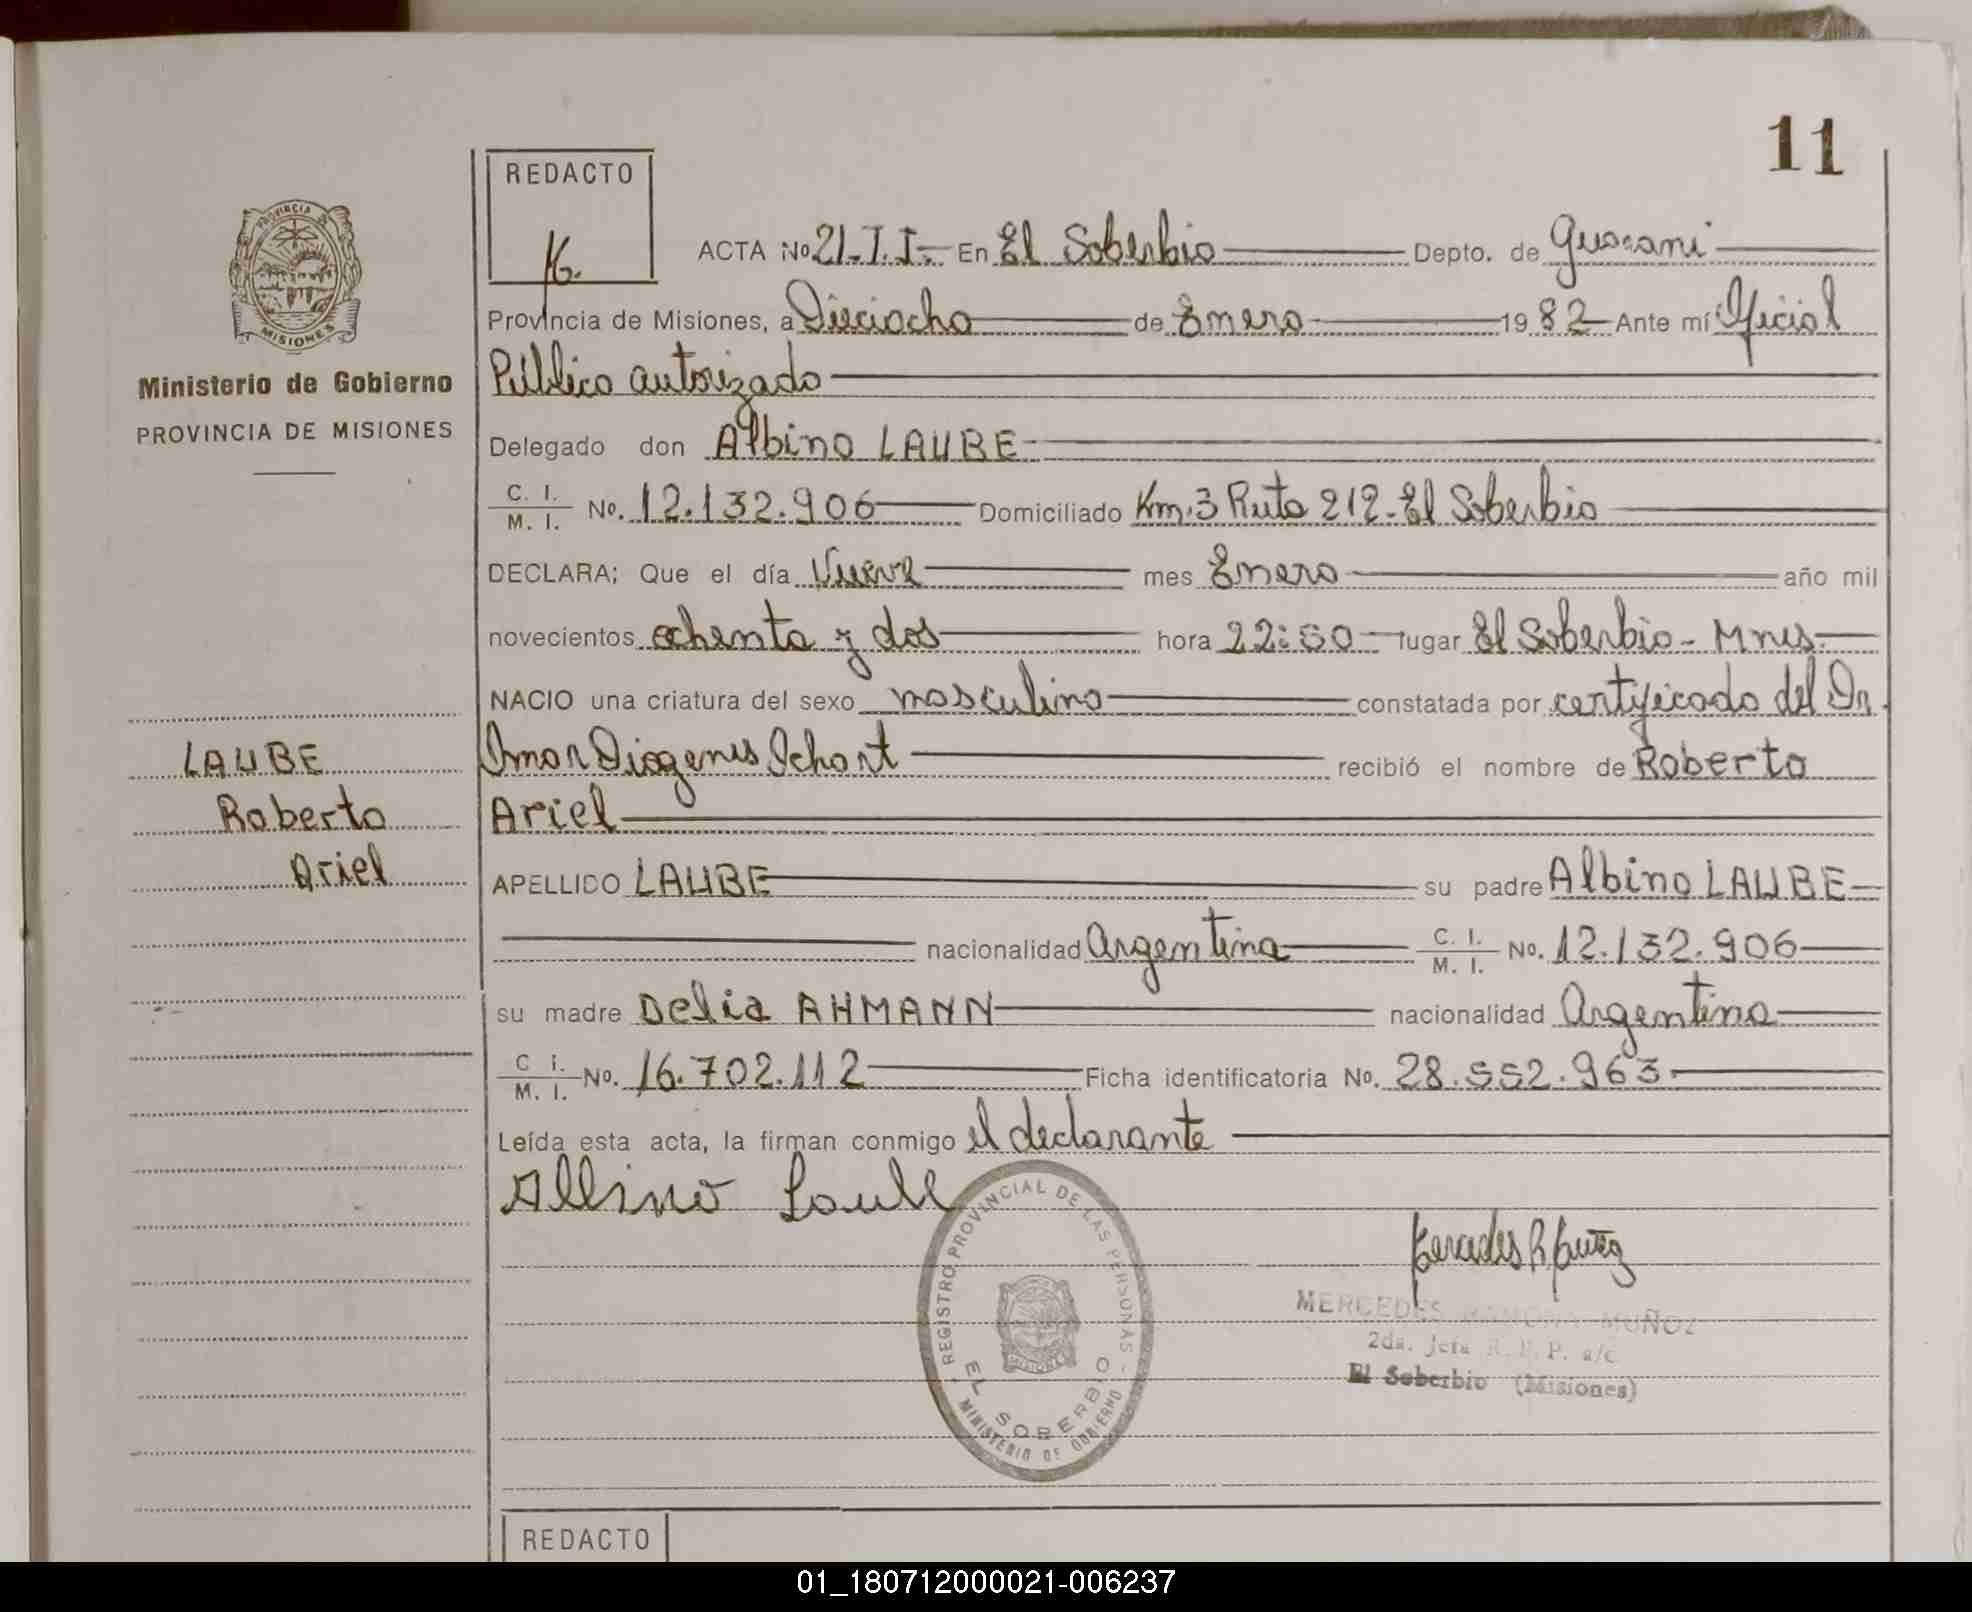 11
REDACTO
PROVINCIA DE
MISIONES
Ministerio de Gobierno
PROVINCIA DE MISIONES
ACTA No 21-T.I.- En El Soberbio Depto. de Guarani
Provincia de Misiones, a Dieciocho de Enero 1982 Ante mí Oficial
Público autorizado
Delegado don Albino LAUBE
C. I. / M. I. No. 12.132.906 Domiciliado Km.3 Ruta 212-El Soberbio
DECLARA; Que el día Nueve mes Enero año mil
novecientos ochenta y dos hora 22:50 lugar El Soberbio - Mnes.
NACIO una criatura del sexo masculino constatada por certificado del Dr.
Omar Diogenes Ichart recibió el nombre de Roberto
Ariel
LAUBE
Roberto
Ariel
APELLIDO LAUBE su padre Albino LAUBE
nacionalidad Argentina C. I. / M. I. No. 12.132.906
su madre Delia AHMANN nacionalidad Argentina
C. I. / M. I. No. 16.702.112 Ficha identificatoria No. 28.552.963
Leída esta acta, la firman conmigo el declarante
Albino Laube
REGISTRO PROVINCIAL DE LAS PERSONAS -
EL SOBERBIO
MINISTERIO DE GOBIERNO
MISIONES
MERCEDES RAMONA MUÑOZ
2da. Jefa R. P. P. a/c
El Soberbio (Misiones)
REDACTO
01_180712000021-006237